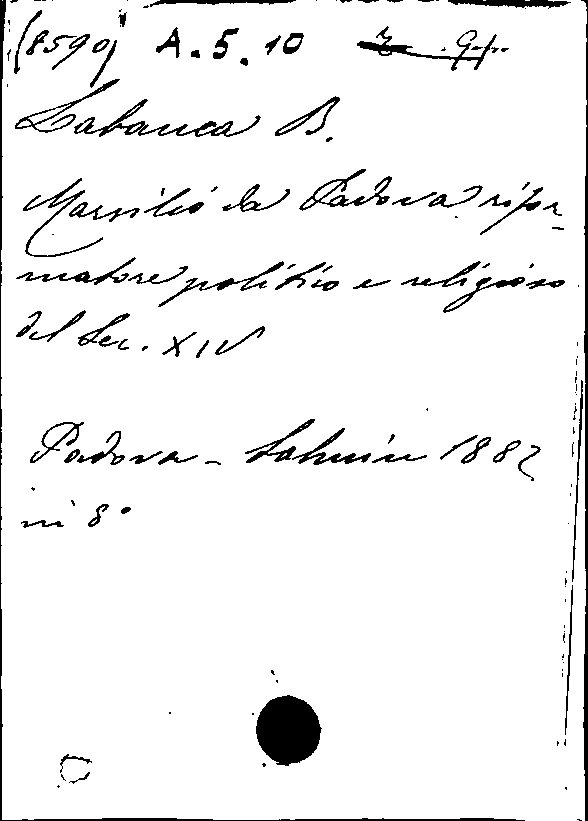 (8590) A.5.10
Labanca B.
Marsilio da Padova rifor-
matore politico e religioso
del Sec. XIV
Padova - Salmin 1882
in 8°